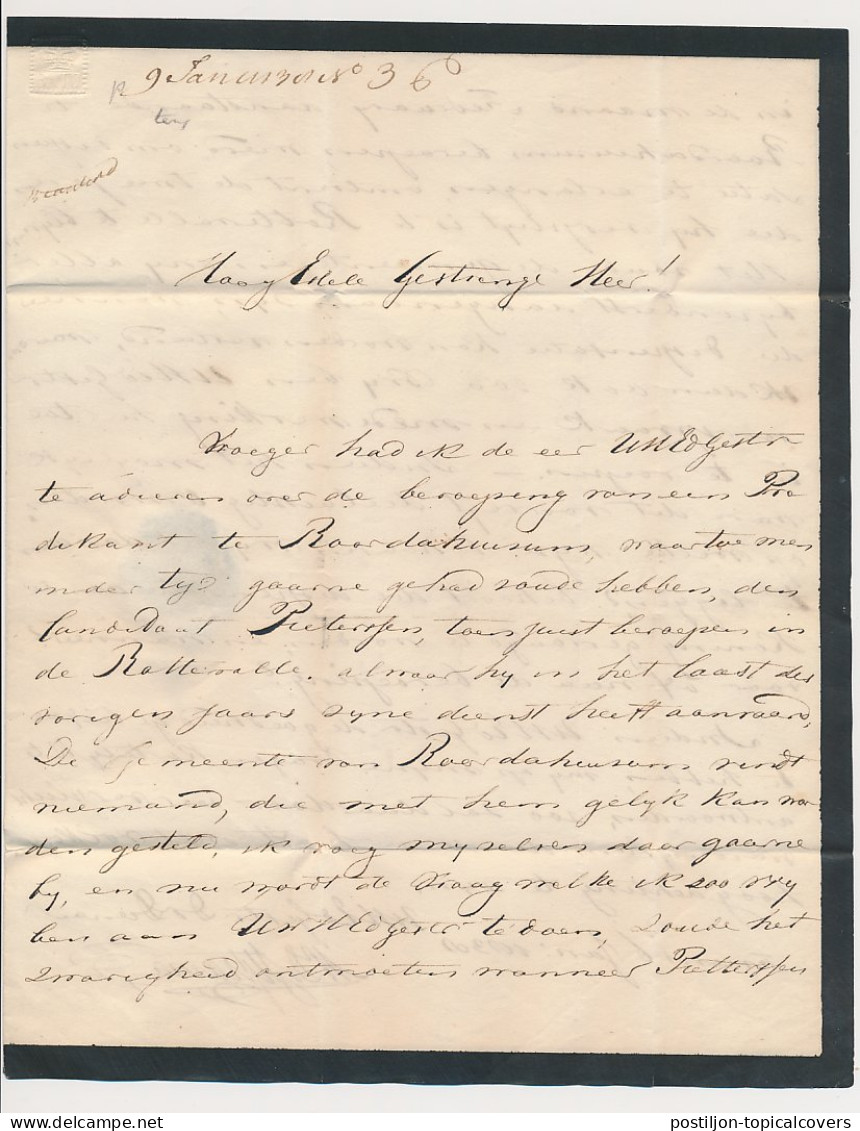 9 Januari No 36
Hoog Edele Gestrenge Heer!
Vroeger had ik de eer UHEdGestr
te adieren over de beroeping van een Pre
dikant te Roordahuisum, waartoe men
inder tyd gaarne gehad zoude hebben, den
Candidaat Pieterssen, toen juist beroepen in
de Rottevalle, alwaar hy in het laast des
vorigen jaars syne dienst heeft aanvaard,
De gemeente van Roordahuisum vindt
niemand, die met hem gelyk kan wor
den gesteld, ik voeg my selven daar gaarne
by, en nu wordt de vraag welke ik zoo vry
ben aan UwHEdGestr te doen, zoude het
zwarigheid ontmoeten wanneer Pieterssen
postiljon-topicalcovers